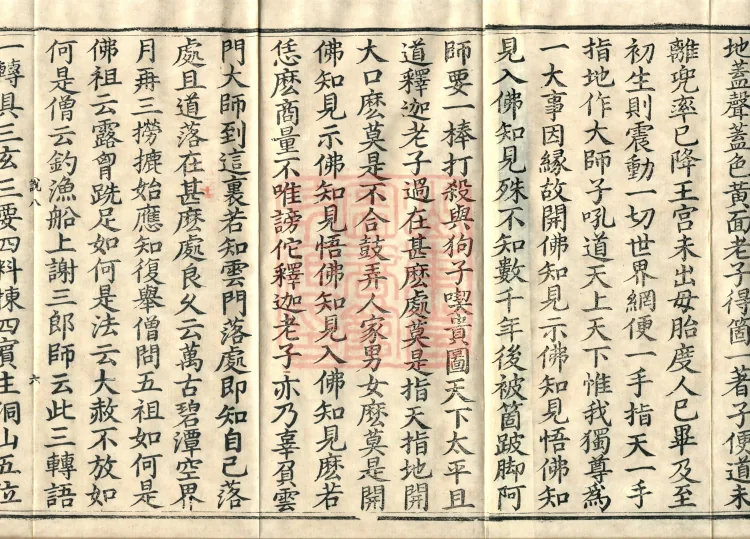 地蓋聲蓋色黃面老子得箇一著子便道未
離兜率已降王宮未出母胎度人已畢及至
初生則震動一切世界網便一手指天一手
指地作大師子吼道天上天下惟我獨尊爲
一大事因緣故開佛知見示佛知見悟佛知
見入佛知見殊不知數千年後被箇跛脚阿
師要一棒打殺與狗子喫貴圖天下太平且
道釋迦老子過在甚麽處莫是指天指地開
大口麽莫是不合鼓弄人家男女麽莫是開
佛知見示佛知見悟佛知見入佛知見麽若
恁麽商量不唯謗佗釋迦老子亦乃辜負雲
門大師到這裏若知雲門落處即知自己落
處且道落在甚麽處良久云萬古碧潭空界
月再三撈摝始應知復舉僧問五祖如何是
佛祖云露胷跣足如何是法云大赦不放如
何是僧云釣漁船上謝三郎師云此三轉語
說八 六
一轉具三玄三要四料揀四賓主洞山五位